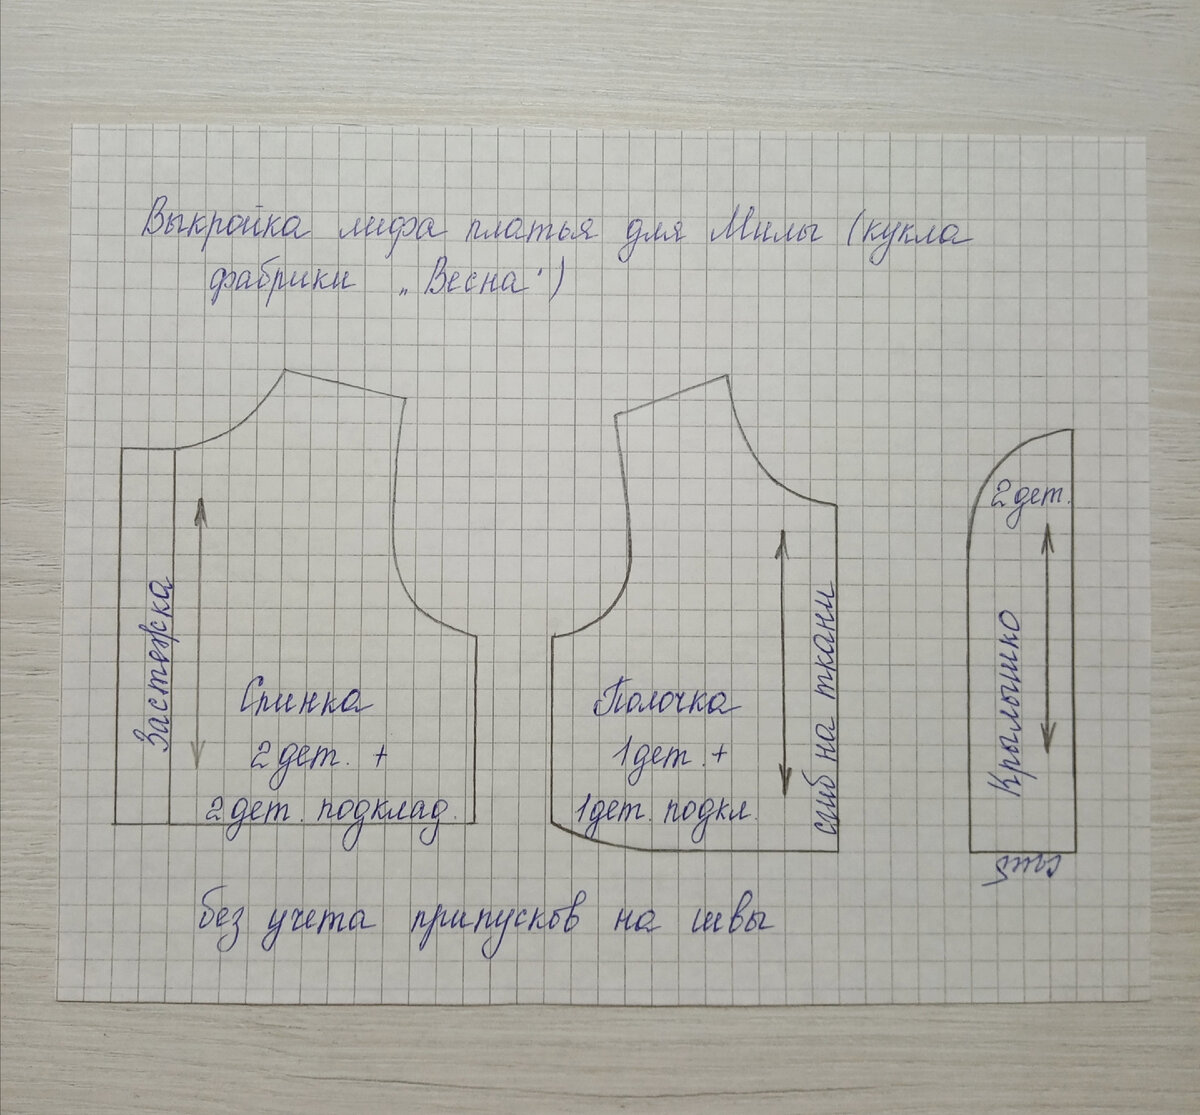 Выкройка лифа платья для Милы (кукла
фабрики „Весна")
Застежка
Спинка
2 дет. +
2 дет. подклад.
Полочка
1 дет. +
1 дет. подкл.
сгиб на ткани
2 дет.
Крылышко
сгиб
без учета припусков на швы